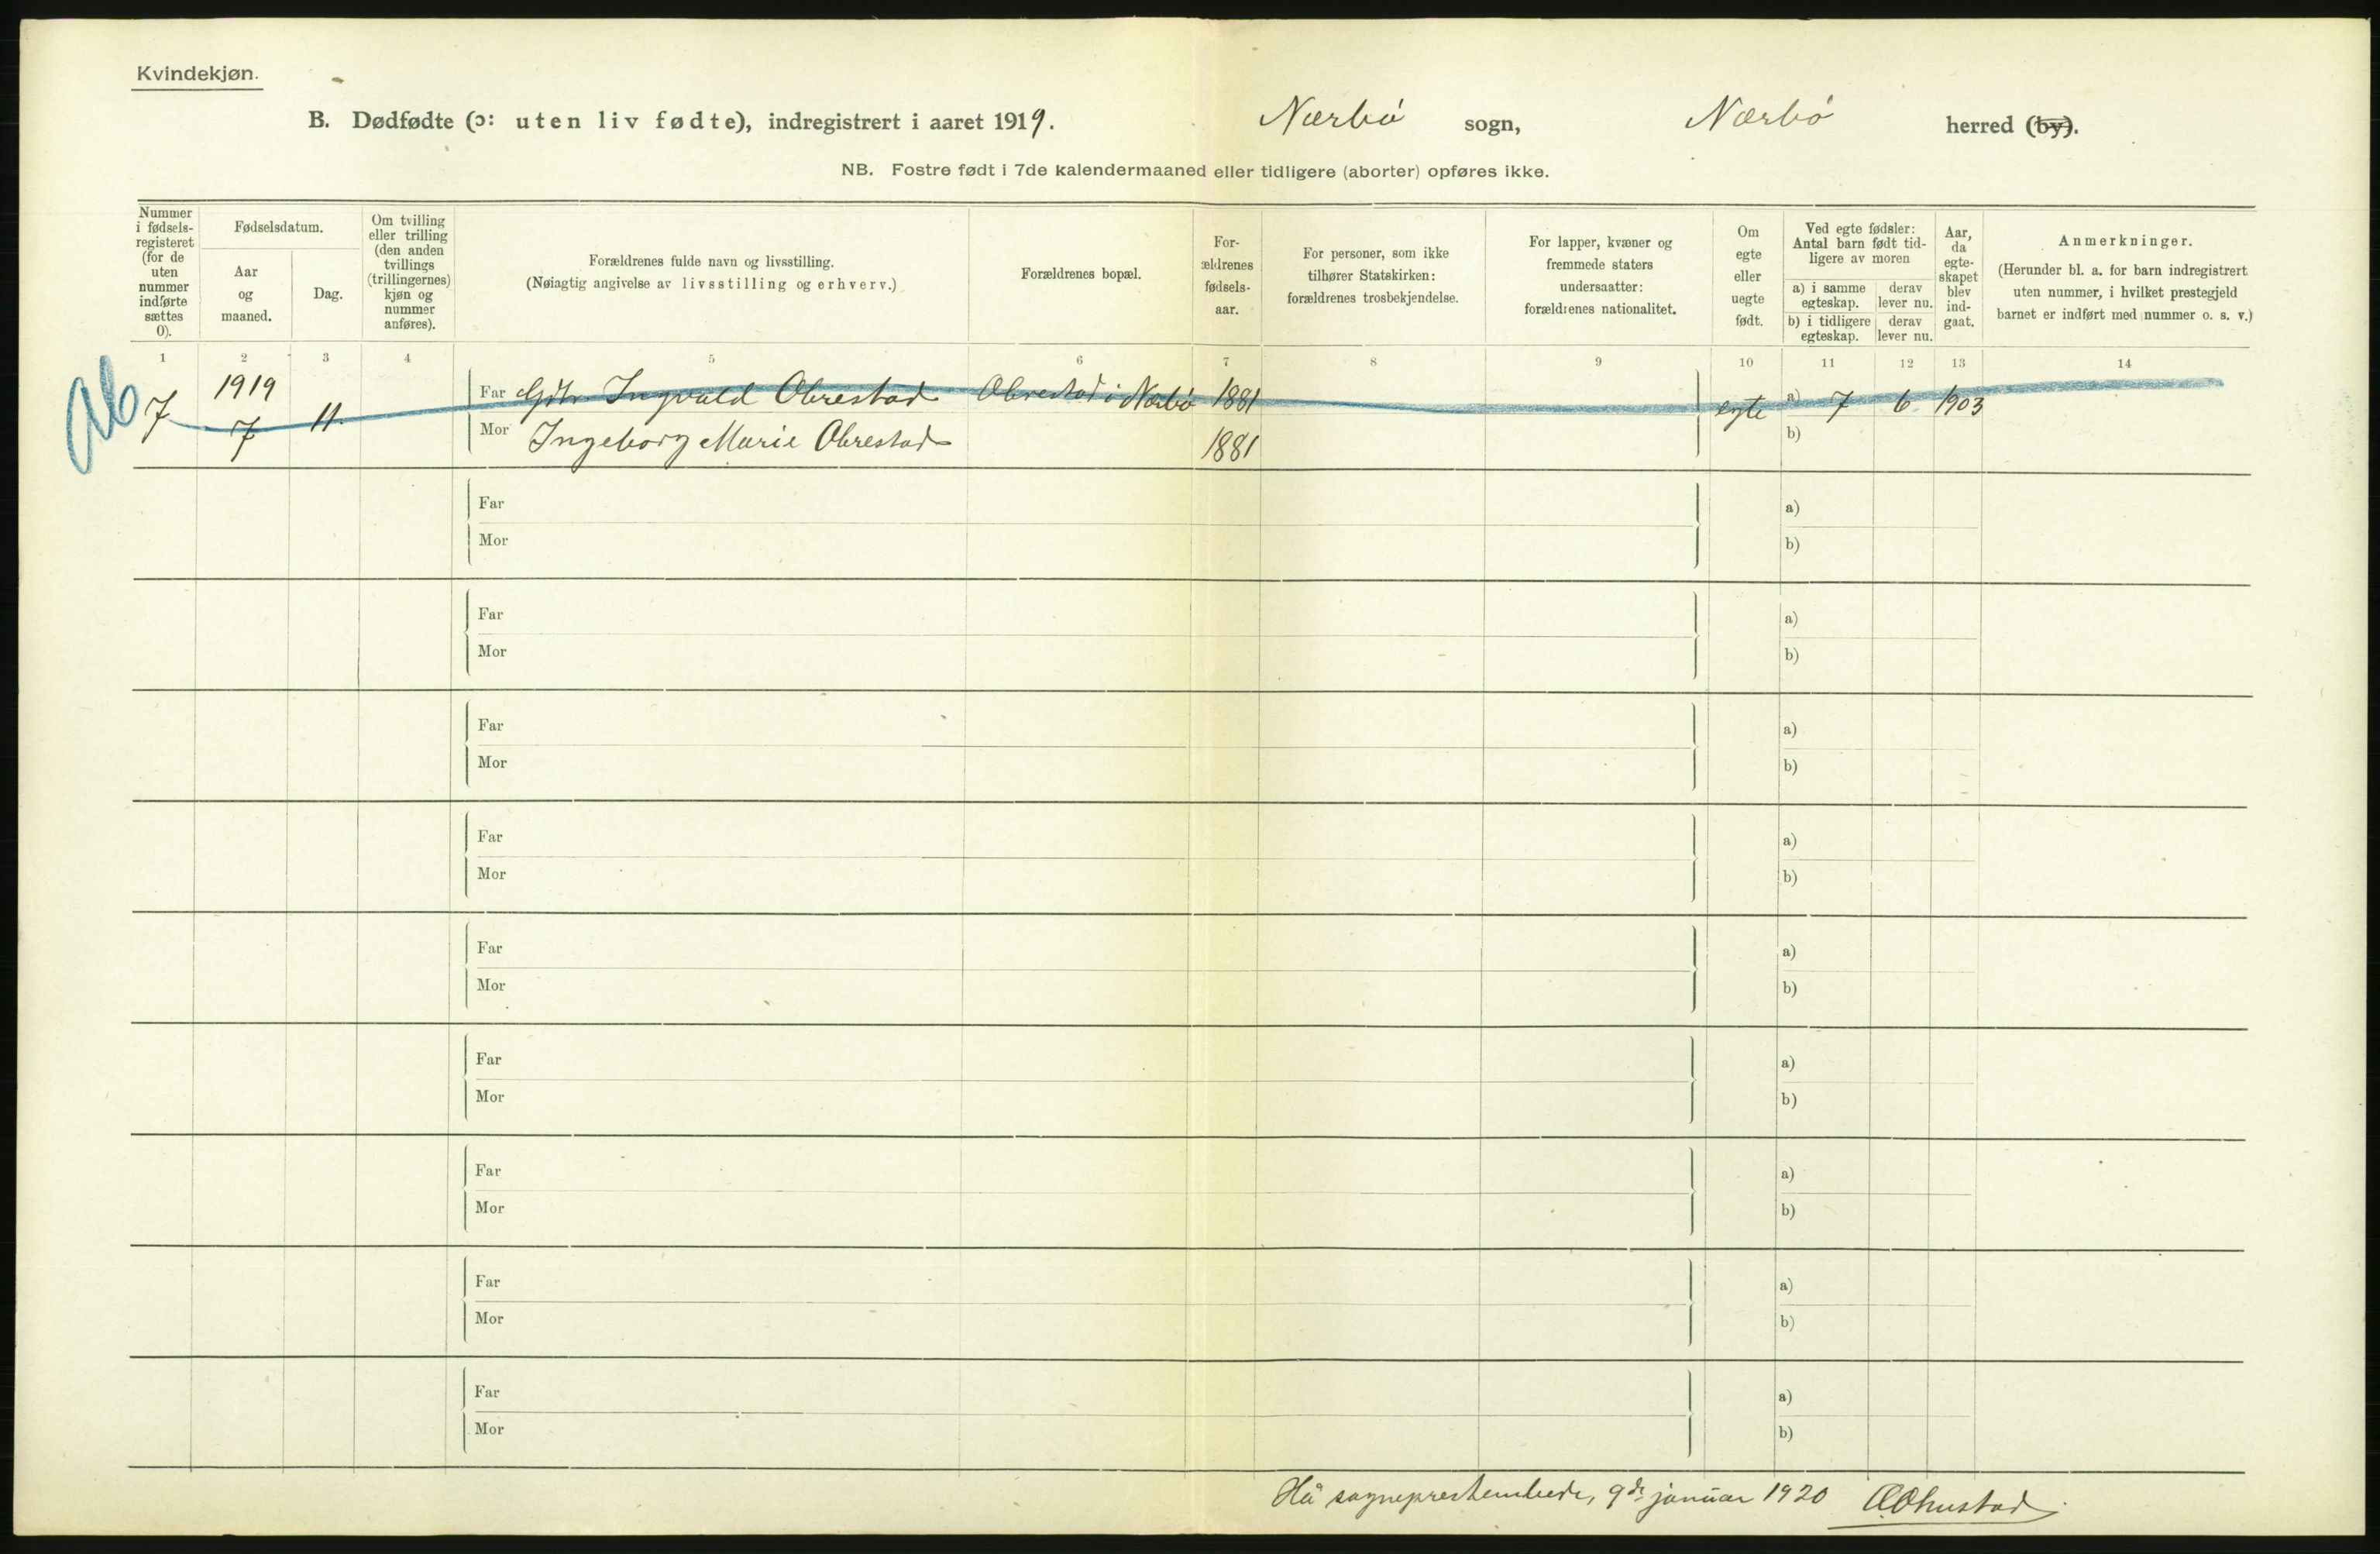 Kvindekjøn.
B. Dødfødte (ɔ: uten liv fødte), indregistrert i aaret 1919. Nærbø sogn, Nærbø herred (by).
NB. Fostre født i 7de kalendermaaned eller tidligere (aborter) opføres ikke.
Nummer
i fødsels-
registeret
(for de
uten
nummer
indførte
sættes
0).
Fødselsdatum.
Aar
og
maaned.
Dag.
Om tvilling
eller trilling
(den anden
tvillings
(trillingernes)
kjøn og
nummer
anføres).
Forældrenes fulde navn og livsstilling.
(Nøiagtig angivelse av livsstilling og erhverv.)
Forældrenes bopæl.
For-
ældrenes
fødsels-
aar.
For personer, som ikke
tilhører Statskirken:
forældrenes trosbekjendelse.
For lapper, kvæner og
fremmede staters
undersaatter:
forældrenes nationalitet.
Om
egte
eller
uegte
født.
Ved egte fødsler:
Antal barn født tid-
ligere av moren
a) i samme
egteskap.
derav
lever nu.
b) i tidligere
egteskap.
derav
lever nu.
Aar,
da
egte-
skapet
blev
ind-
gaat.
Anmerkninger.
(Herunder bl. a. for barn indregistrert
uten nummer, i hvilket prestegjeld
barnet er indført med nummer o. s. v.)
1 2 3 4 5 6 7 8 9 10 11 12 13 14
Ab
7 1919 7 11. Far Gdbr. Ingvald Obrestad Obrestad i Nærbø 1881 egte a) 7 6 1903
Mor Ingeborg Marie Obrestad 1881 b)
Far a)
Mor b)
Far a)
Mor b)
Far a)
Mor b)
Far a)
Mor b)
Far a)
Mor b)
Far a)
Mor b)
Far a)
Mor b)
Far a)
Mor b)
Far a)
Mor b)
Hå sogneprestembede, 9de januar 1920